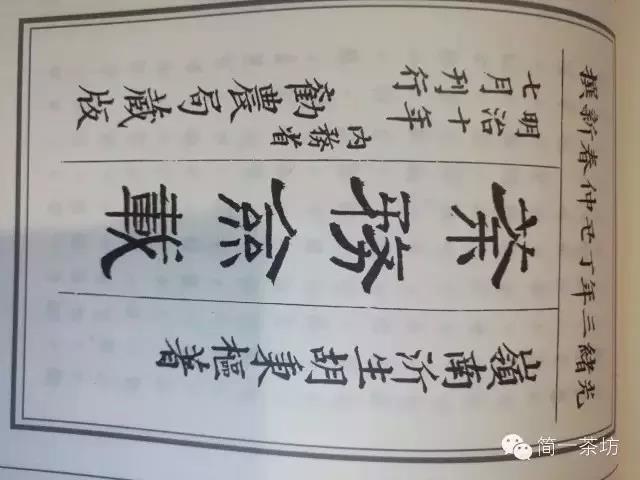 光緒三年丁丑仲春新撰
嶺南沂生胡秉樞著
茶務僉載
明治十年
七月刊行
内務省
勸農局藏版
简一茶坊